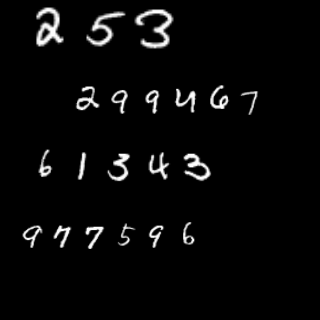 253
299467
61343
977596